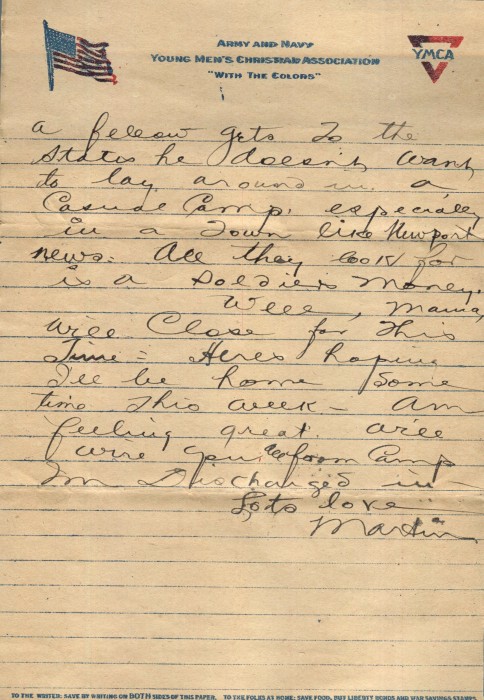 ARMY AND NAVY
YOUNG MEN'S CHRISTIAN ASSOCIATION
"WITH THE COLORS"
YMCA
a fellow gets to the
States he doesn't want
to lay around in a
Casual Camp, especially
in a Town like Newport
news. All they look for
is a Soldiers Money.
Well, Mama,
will Close for This
Time = Heres hoping
I'll be home Some
time This week - Am
feeling great. will
wire you from Camp
Im Discharged in -
Lots love
Martin
TO THE WRITER: SAVE BY WRITING ON BOTH SIDES OF THIS PAPER. TO THE FOLKS AT HOME: SAVE FOOD, BUY LIBERTY BONDS AND WAR SAVINGS STAMPS